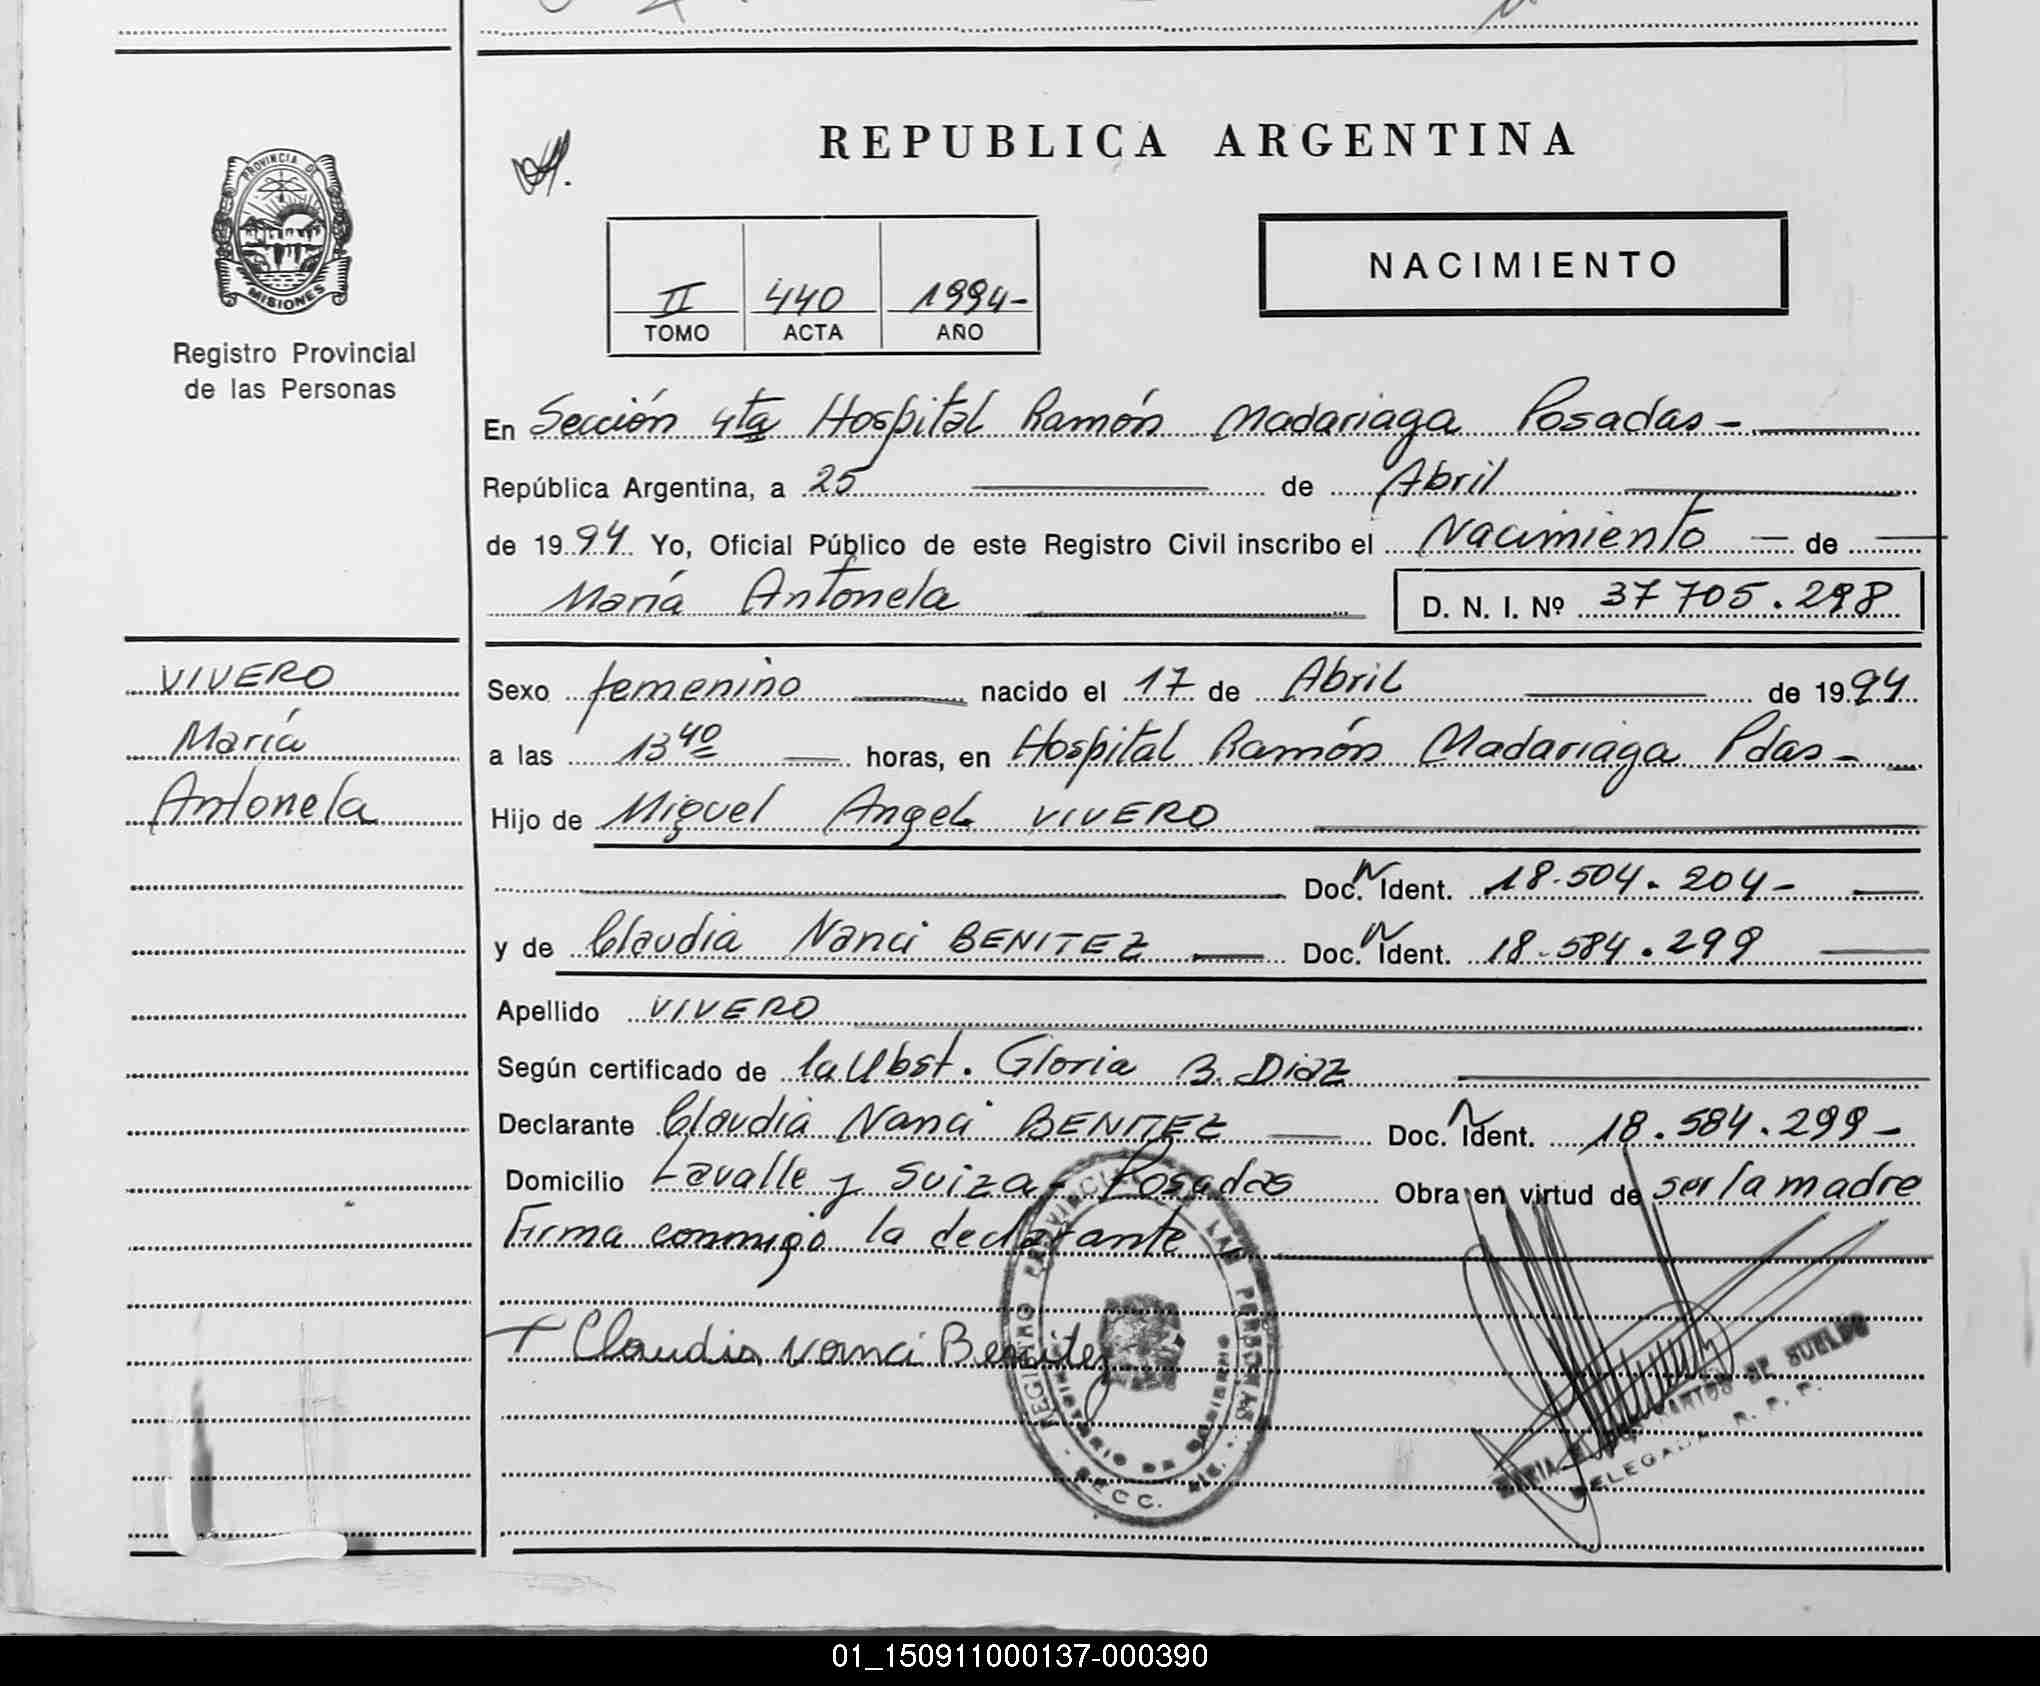 PROVINCIA DE
MISIONES
Registro Provincial
de las Personas
REPUBLICA ARGENTINA
II 440 1994-
TOMO ACTA AÑO
NACIMIENTO
En Sección 4ta Hospital Ramón Madariaga Posadas -
República Argentina, a 25 de Abril
de 1994 Yo, Oficial Público de este Registro Civil inscribo el Nacimiento de
María Antonela D. N. I. Nº 37705.298
VIVERO
María
Antonela
Sexo femenino nacido el 17 de Abril de 1994
a las 13 40 horas, en Hospital Ramón Madariaga Pdas -
Hijo de Miguel Angel VIVERO
Doc. N Ident. 18.504.204-
y de Claudia Nanci BENITEZ Doc. N Ident. 18.584.299
Apellido VIVERO
Según certificado de la Obst. Gloria B. Diaz
Declarante Claudia Nanci BENITEZ Doc. N Ident. 18.584.299-
Domicilio Lavalle y Suiza - Posadas Obra en virtud de ser la madre
Firma conmigo la declarante
Claudia Nanci Benitez
REGISTRO PROVINCIAL DE LAS PERSONAS
MINISTERIO DE GOBIERNO
SECC.
MARIA SANTOS DE SUELDO
DELEGADA R. P. P.
01_150911000137-000390